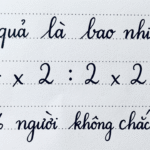 quả là bao nhi
x 2 : 2 x 2
người không chắc